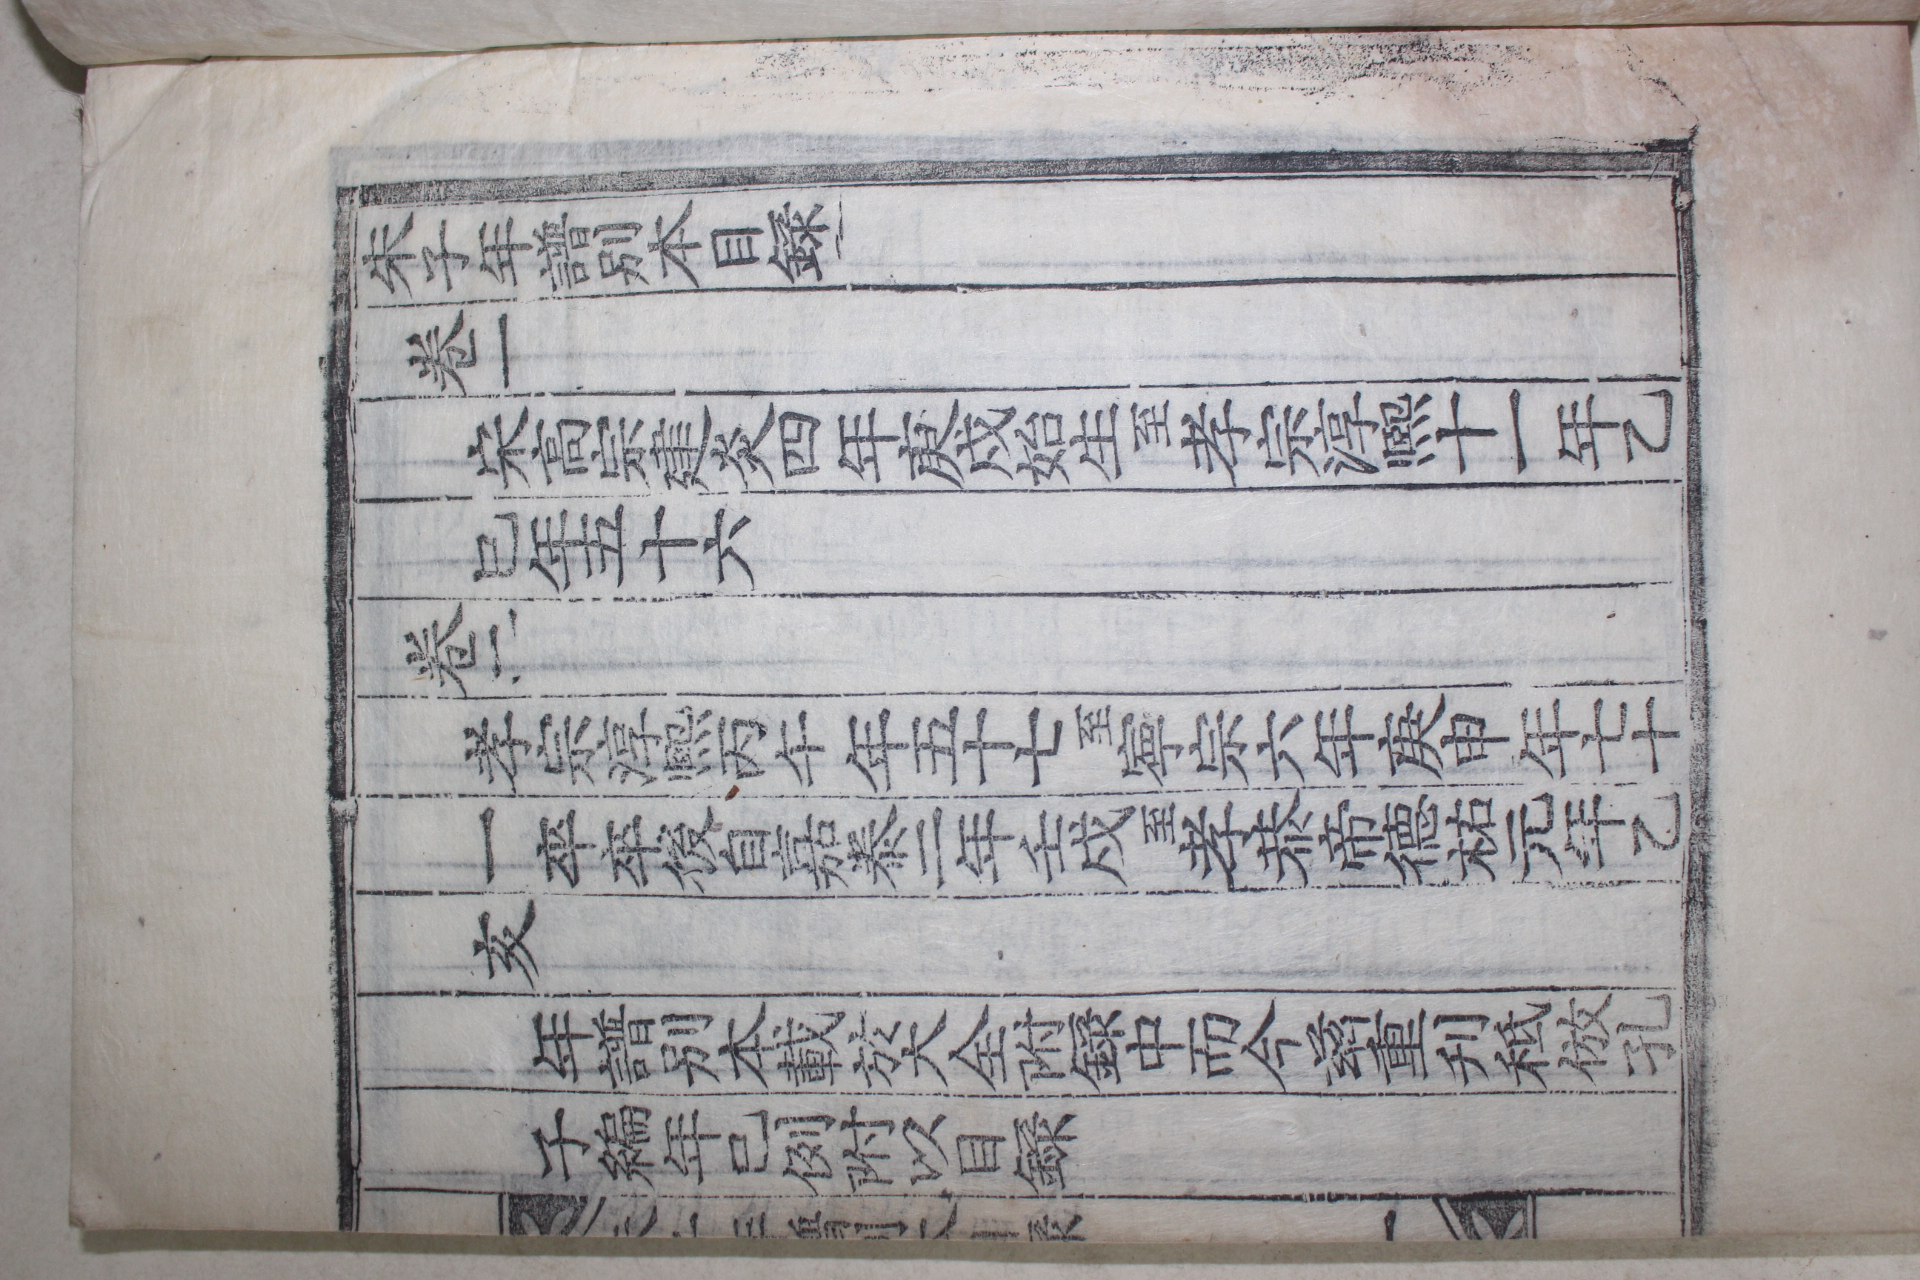 朱子年譜別本目録
卷一
宋高宗建炎四年庚戌始生至孝宗淳熙十一年乙
巳年五十六
卷二
孝宗淳熙丙午年五十七至寧宗六年庚申年七十
一卒卒後自嘉泰二年壬戌至孝恭帝德祐元年乙
亥
年譜別本載於大全附録中而今玆重刋秪倣孔
子編年已例附以目録